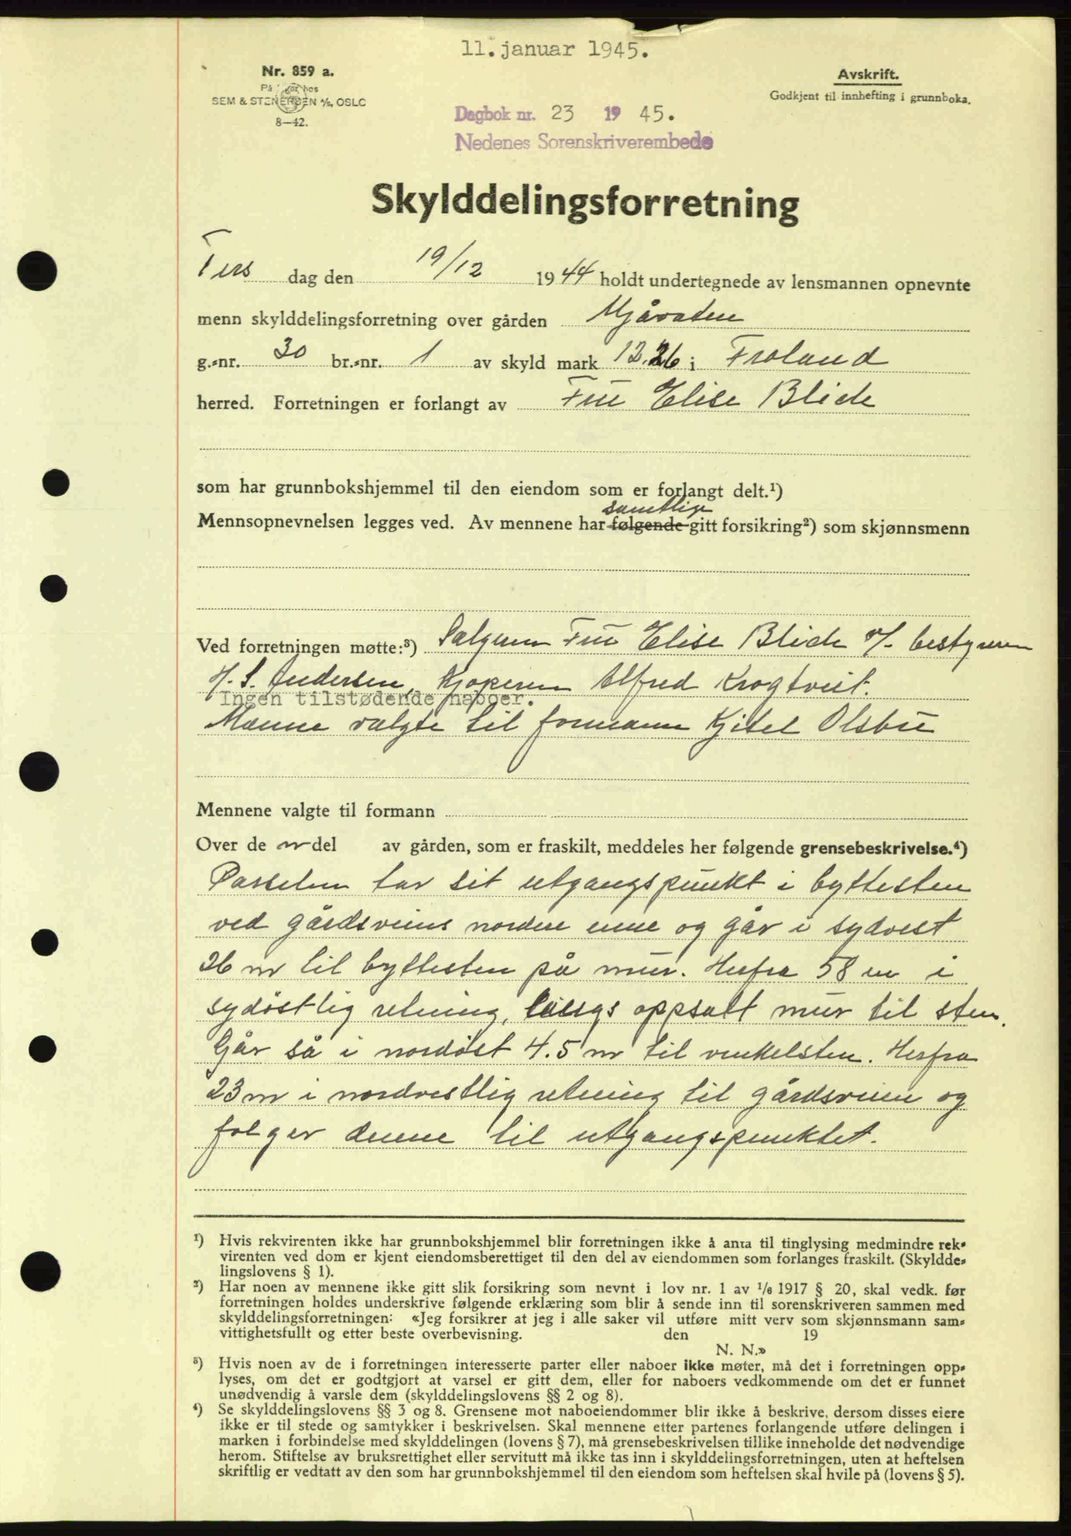 11. januar 1945.
Nr. 859 a.
SEM & STENERSEN A/S, OSLO
8—42.
Avskrift.
Godkjent til innhefting i grunnboka.
Dagbok nr. 23 1945.
Nedenes Sorenskriverembede
Skylddelingsforretning
Tirs dag den 19/12 1944 holdt undertegnede av lensmannen opnevnte
menn skylddelingsforretning over gården Mjåvaten
g.-nr. 30 br.-nr. 1 av skyld mark 12.26 i Froland
herred. Forretningen er forlangt av Fru Elise Blich
som har grunnbokshjemmel til den eiendom som er forlangt delt.¹)
samtlige
Mennsopnevnelsen legges ved. Av mennene har følgende gitt forsikring²) som skjønnsmenn
Ved forretningen møtte:³) Selgeren Fru Elise Blich v/ bestyreren
H. S. Andersen, Kjøperen Alfred Krogtveit.
Ingen tilstødende naboer.
Mennene valgte til formann Kjetel Olsbu
Mennene valgte til formann
Over de n del av gården, som er fraskilt, meddeles her følgende grensebeskrivelse.⁴)
Parsellen tar sit utgangspunkt i byttesten
ved gårdsveiens nordre enne og går i sydvest
26 m til byttesten på mur. Herfra 58 m i
sydøstlig retning, langs oppsatt mur til sten.
Går så i nordøst 4.5 m til vinkelsten. Herfra
23 m i nordvestlig retning til gårdsveien og
følger denne til utgangspunktet.
¹) Hvis rekvirenten ikke har grunnbokshjemmel blir forretningen ikke å anta til tinglysing medmindre rek-
virenten ved dom er kjent eiendomsberettiget til den del av eiendommen som forlanges fraskilt. (Skyldde-
lingslovens § 1).
²) Har noen av mennene ikke gitt slik forsikring som nevnt i lov nr. 1 av 1/6 1917 § 20, skal vedk. før
forretningen holdes underskrive følgende erklæring som blir å sende inn til sorenskriveren sammen med
skylddelingsforretningen: «Jeg forsikrer at jeg i alle saker vil utføre mitt verv som skjønnsmann sam-
vittighetsfullt og etter beste overbevisning. den 19
N. N.»
³) Hvis noen av de i forretningen interesserte parter eller naboer ikke møter, må det i forretningen opp-
lyses, om det er godtgjort at varsel er gitt dem, eller for naboers vedkommende om det er funnet
unødvendig å varsle dem (skylddelingslovens §§ 2 og 8).
⁴) Se skylddelingslovens §§ 3 og 8. Grensene mot naboeiendommer blir ikke å beskrive, dersom disses eiere
ikke er til stede og samtykker i beskrivelsen. Skal mennene etter partenes forlangende utføre delingen i
marken i forbindelse med skylddelingen (lovens § 7), må grensebeskrivelsen tillike inneholde det nødvendige
herom. Stiftelse av bruksrettighet eller servitutt må ikke tas inn i skylddelingsforretningen, uten at heftelsen
skriftlig er vedtatt av den som har grunnbokshjemmel til den eiendom som heftelsen skal hvile på (lovens § 5).